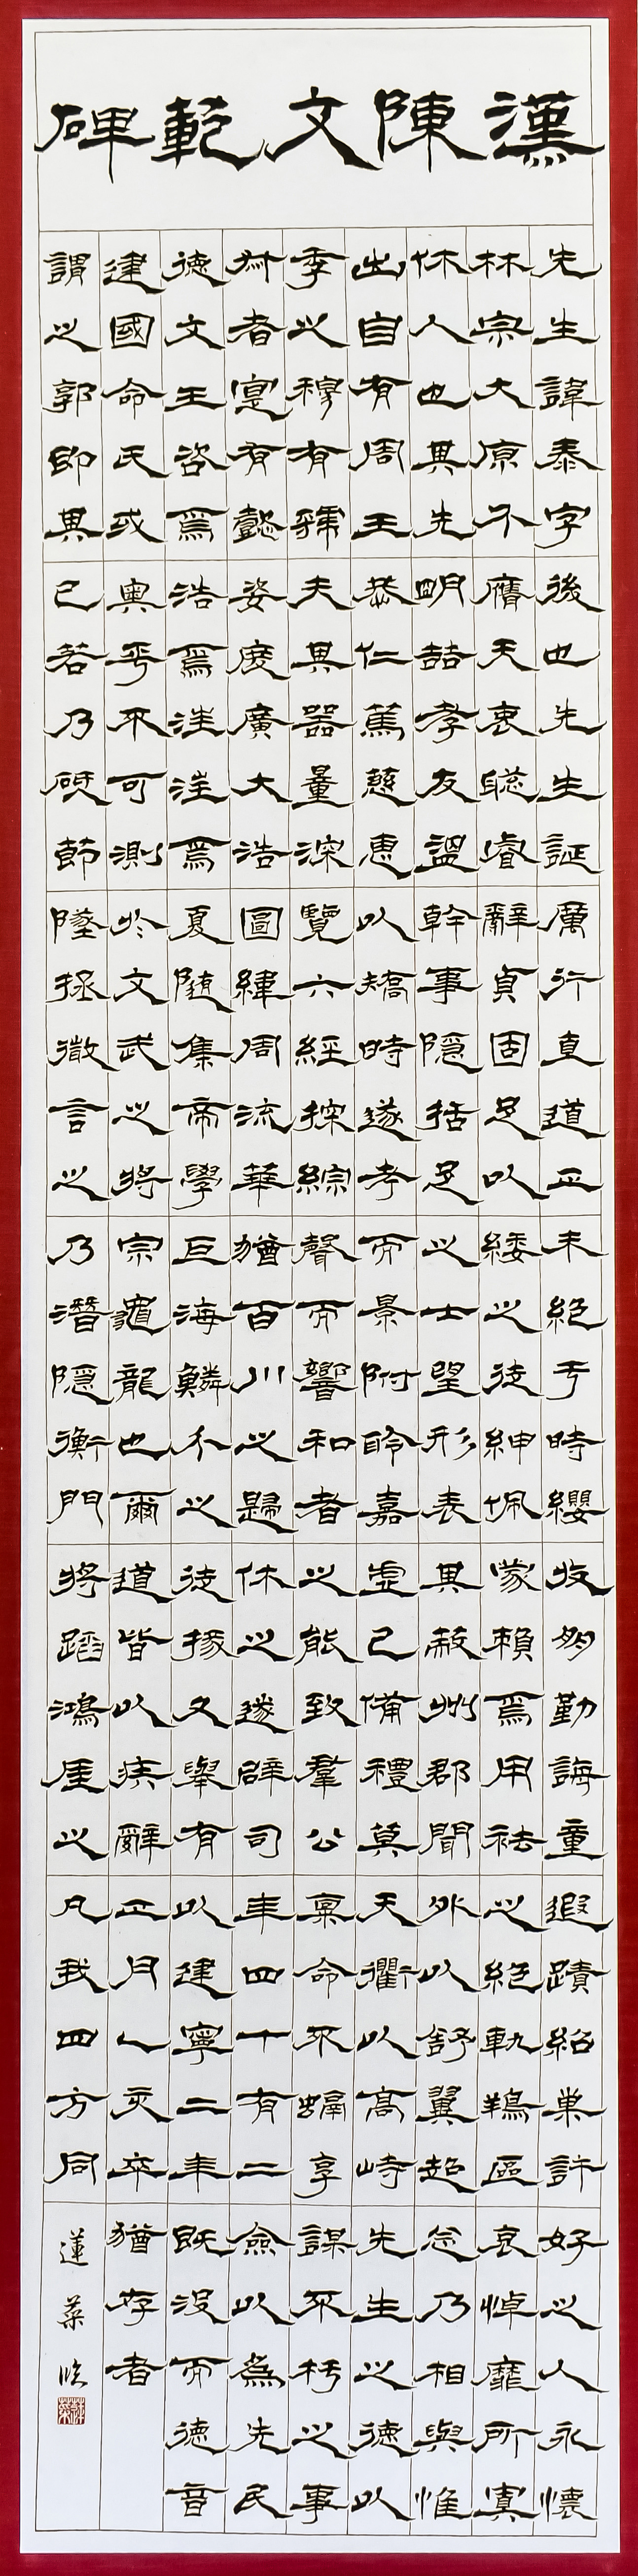 漢陳文範碑
先生諱泰字
林宗大原介
休人也其先
出自有周王
季之穆有虢
叔者寔有懿
德文王咨焉
建國命氏或
謂之郭即其
後也先生誕
膺天衷聡睿
明喆孝友溫
恭仁篤慈惠
夫其器量深
姿度廣大浩
浩焉汪汪焉
奧乎不可測
已若乃砥節
厲行直道正
辭貞固足以
幹事隱括足
以矯時遂考
覽六經探綜
圖緯周流華
夏隨集帝學
於文武之將
墜拯微言之
未絕于時纓
緌之徒紳佩
之士望形表
而景附聆嘉
聲而響和者
猶百川之歸
巨海鱗介之
宗龜龍也爾
乃潛隱衡門
收朋勤誨童
蒙賴焉用祛
其蔽州郡聞
虛己備禮莫
之能致羣公
休之遂辟司
徒掾又舉有
道皆以疾辭
將蹈鴻厓之
遐蹟紹巢許
之絕軌翔區
外以舒翼超
天衢以高峙
稟命不融享
年四十有二
以建寧二年
正月乙亥卒
凡我四方同
好之人永懷
哀悼靡所寘
念乃相與惟
先生之德以
謀不朽之事
僉以為先民
既沒而德音
猶存者
蓮葉臨